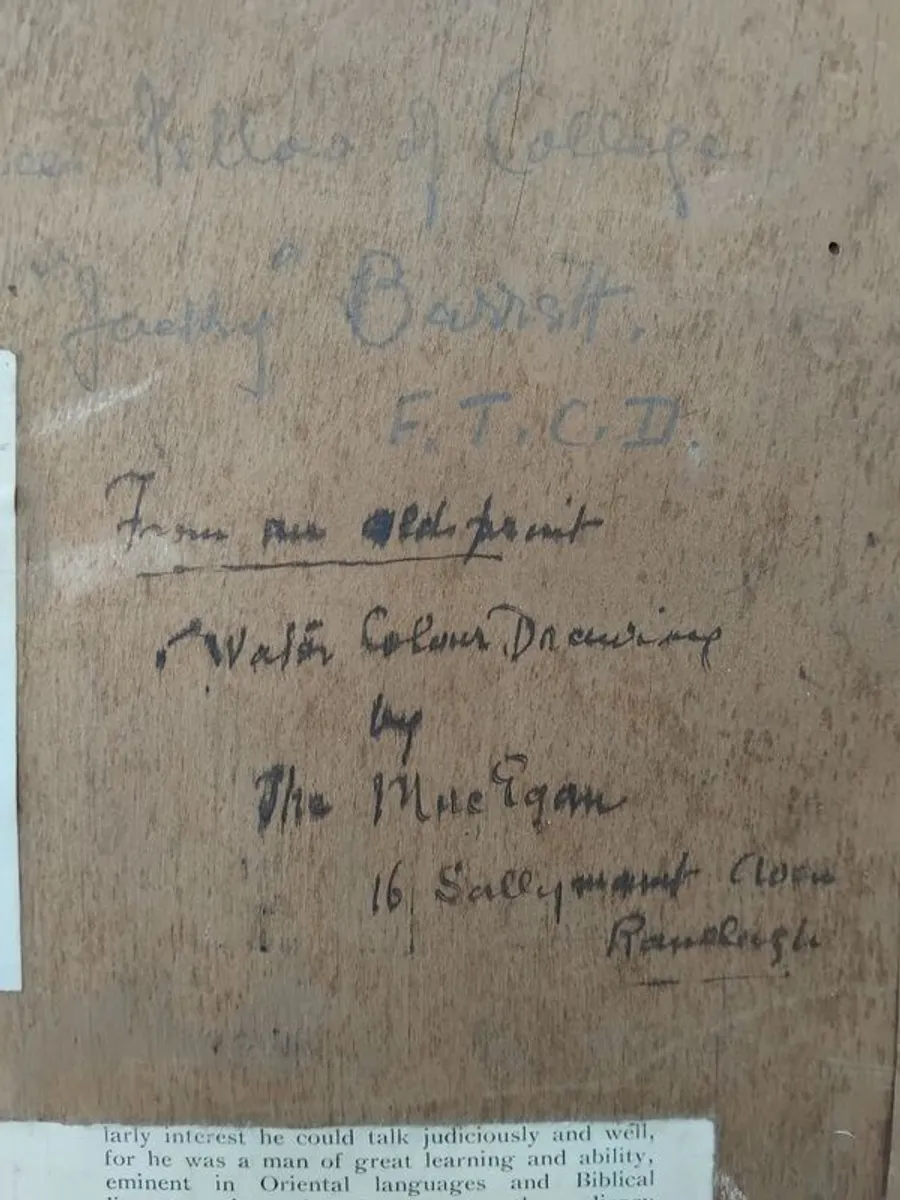 Fellow of College
"Jacky" Barrett.
F.T.C.D.
From an old print
Water Colour Drawing
by
The MacEgan
16 Sallymount Aven
Ranelagh
larly interest he could talk judiciously and well,
for he was a man of great learning and ability,
eminent in Oriental languages and Biblical